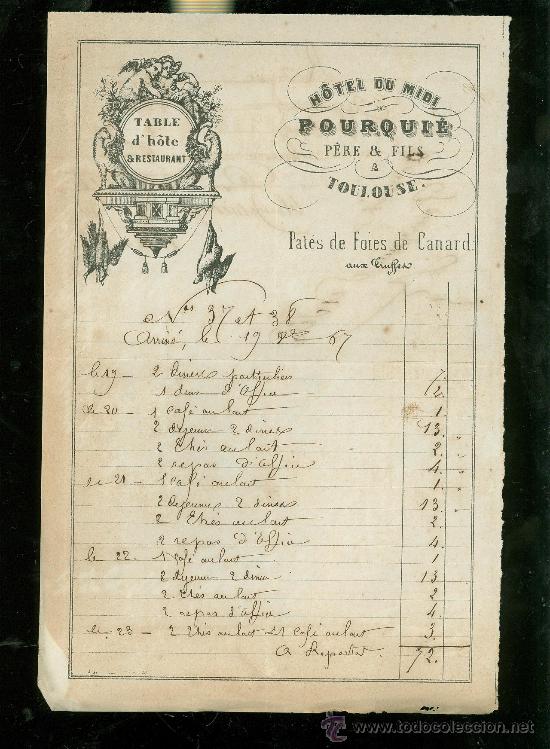 TABLE
d'hôte
& RESTAURANT
HÔTEL DU MIDI
POURQUIÉ
PÈRE & FILS
A
TOULOUSE.
Patés de Foies de Canard
aux truffes
Nos 37 et 38
Arrivé, le 19 67
le 19 - 2 diners particuliers 7.
1 diner d'Affié 2.
le 20 - 1 Café au lait 1.
2 dejeuners 2 diners 13. "
2 Thés au lait 2. "
2 repas d'Affié 4. "
le 21 - 1 Café au lait 1 "
2 dejeuners 2 diners 13. "
2 Thés au lait 2.
2 repas d'Affié 4.
le 22 - 1 Café au lait 1
2 dejeuner 2 diner 13
2 Thés au lait 2
2 repas d'affié 4.
le 23 - 2 Thés au lait et 1 Café au lait 3.
A Reporter 72.
TODOCOLECCION
http://www.todocoleccion.net